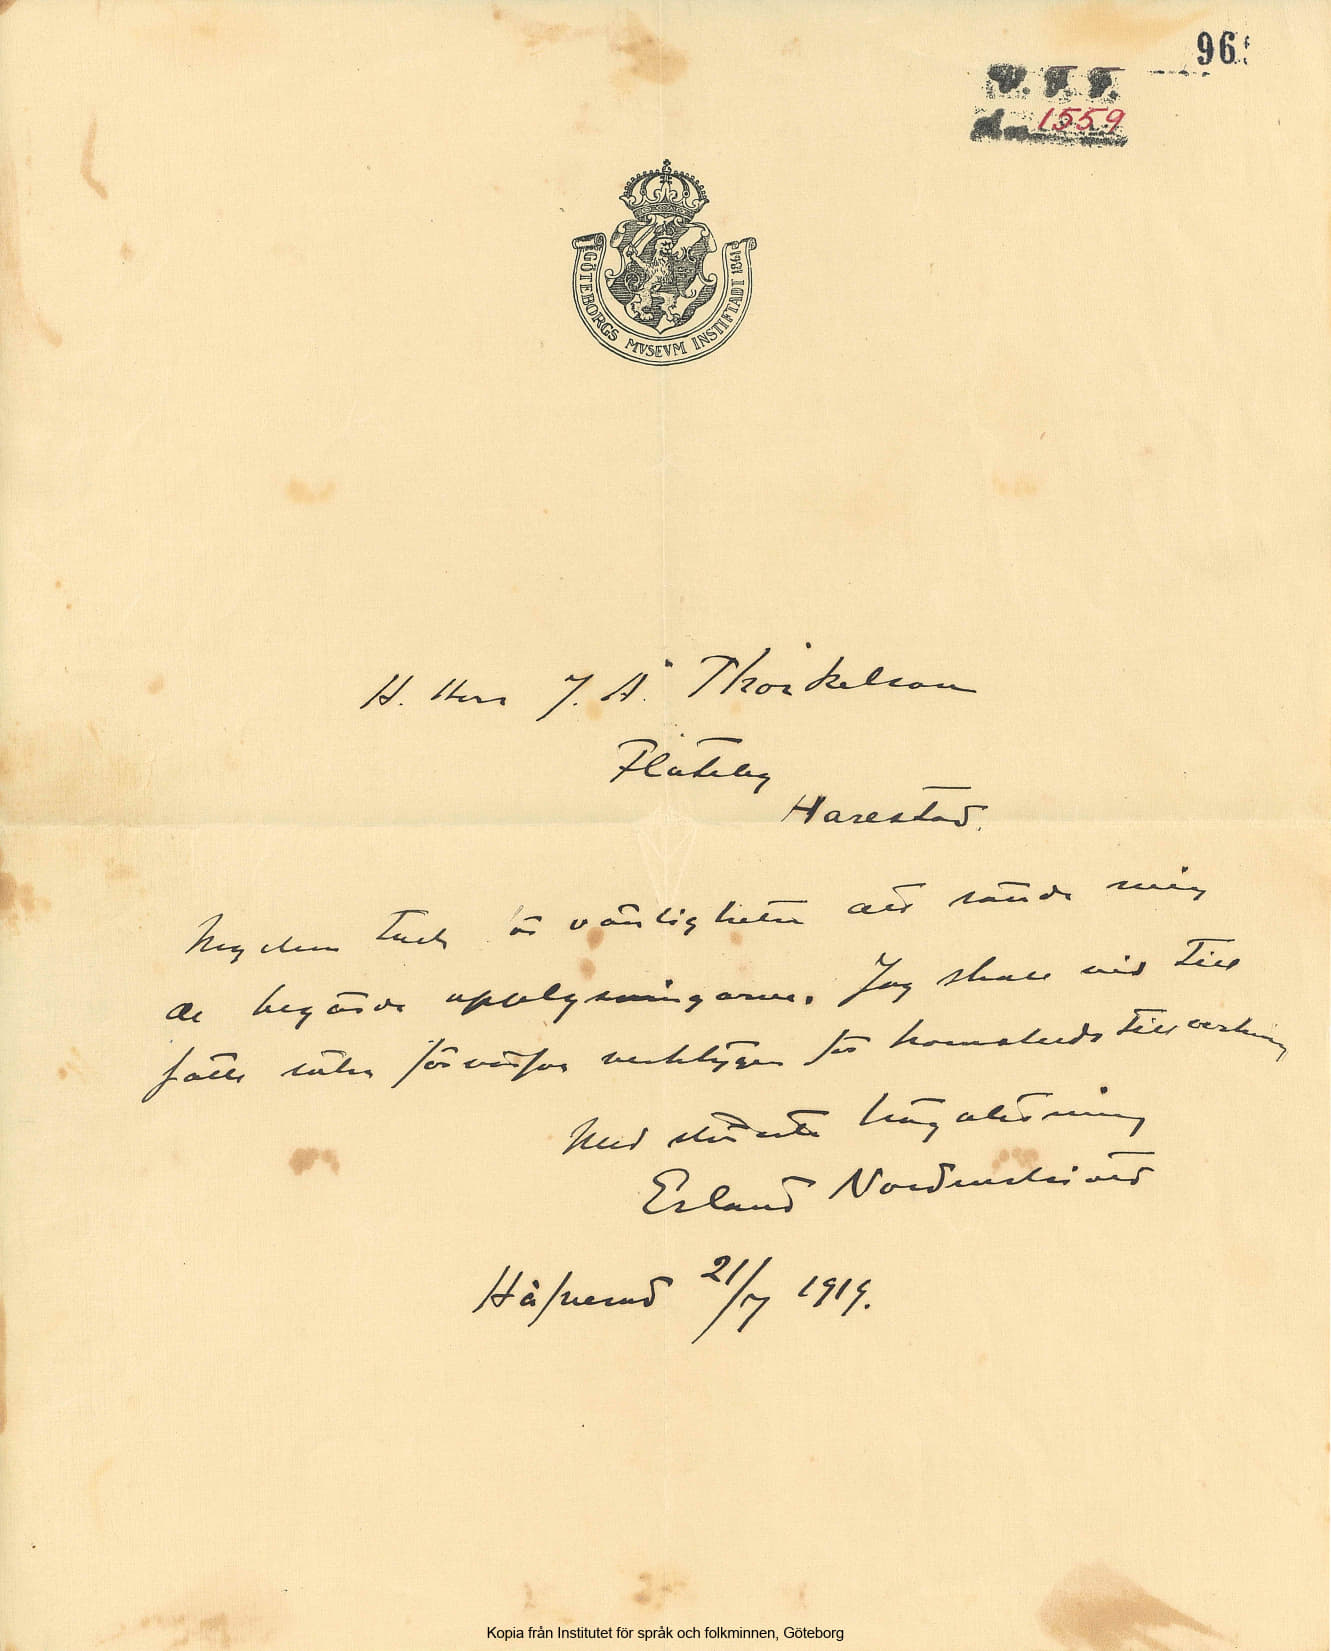 96
V. F. F.
1559
GÖTEBORGS MVSEVM INSTIFTADT 1861
H. Herr J. A. Thorkelson
Flateby
Harestad.
Mycken tack för vänligheten att sända mig
de begärda upplysningarne. Jag skall vid till
fälle söka förvärfva verktygen för tillverkning
Med största högaktning
Erland Nordenskiöld
Håfverud 21/7 1919.
Kopia från Institutet för språk och folkminnen, Göteborg